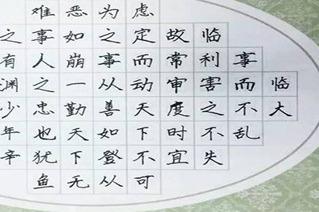 临大
事而不乱
临利害之不失
故常审度时宜
虑定而动天下不可
为之事从善如登从
恶如崩一勤天下无
难事人之忠也犹鱼
之有渊少年辛